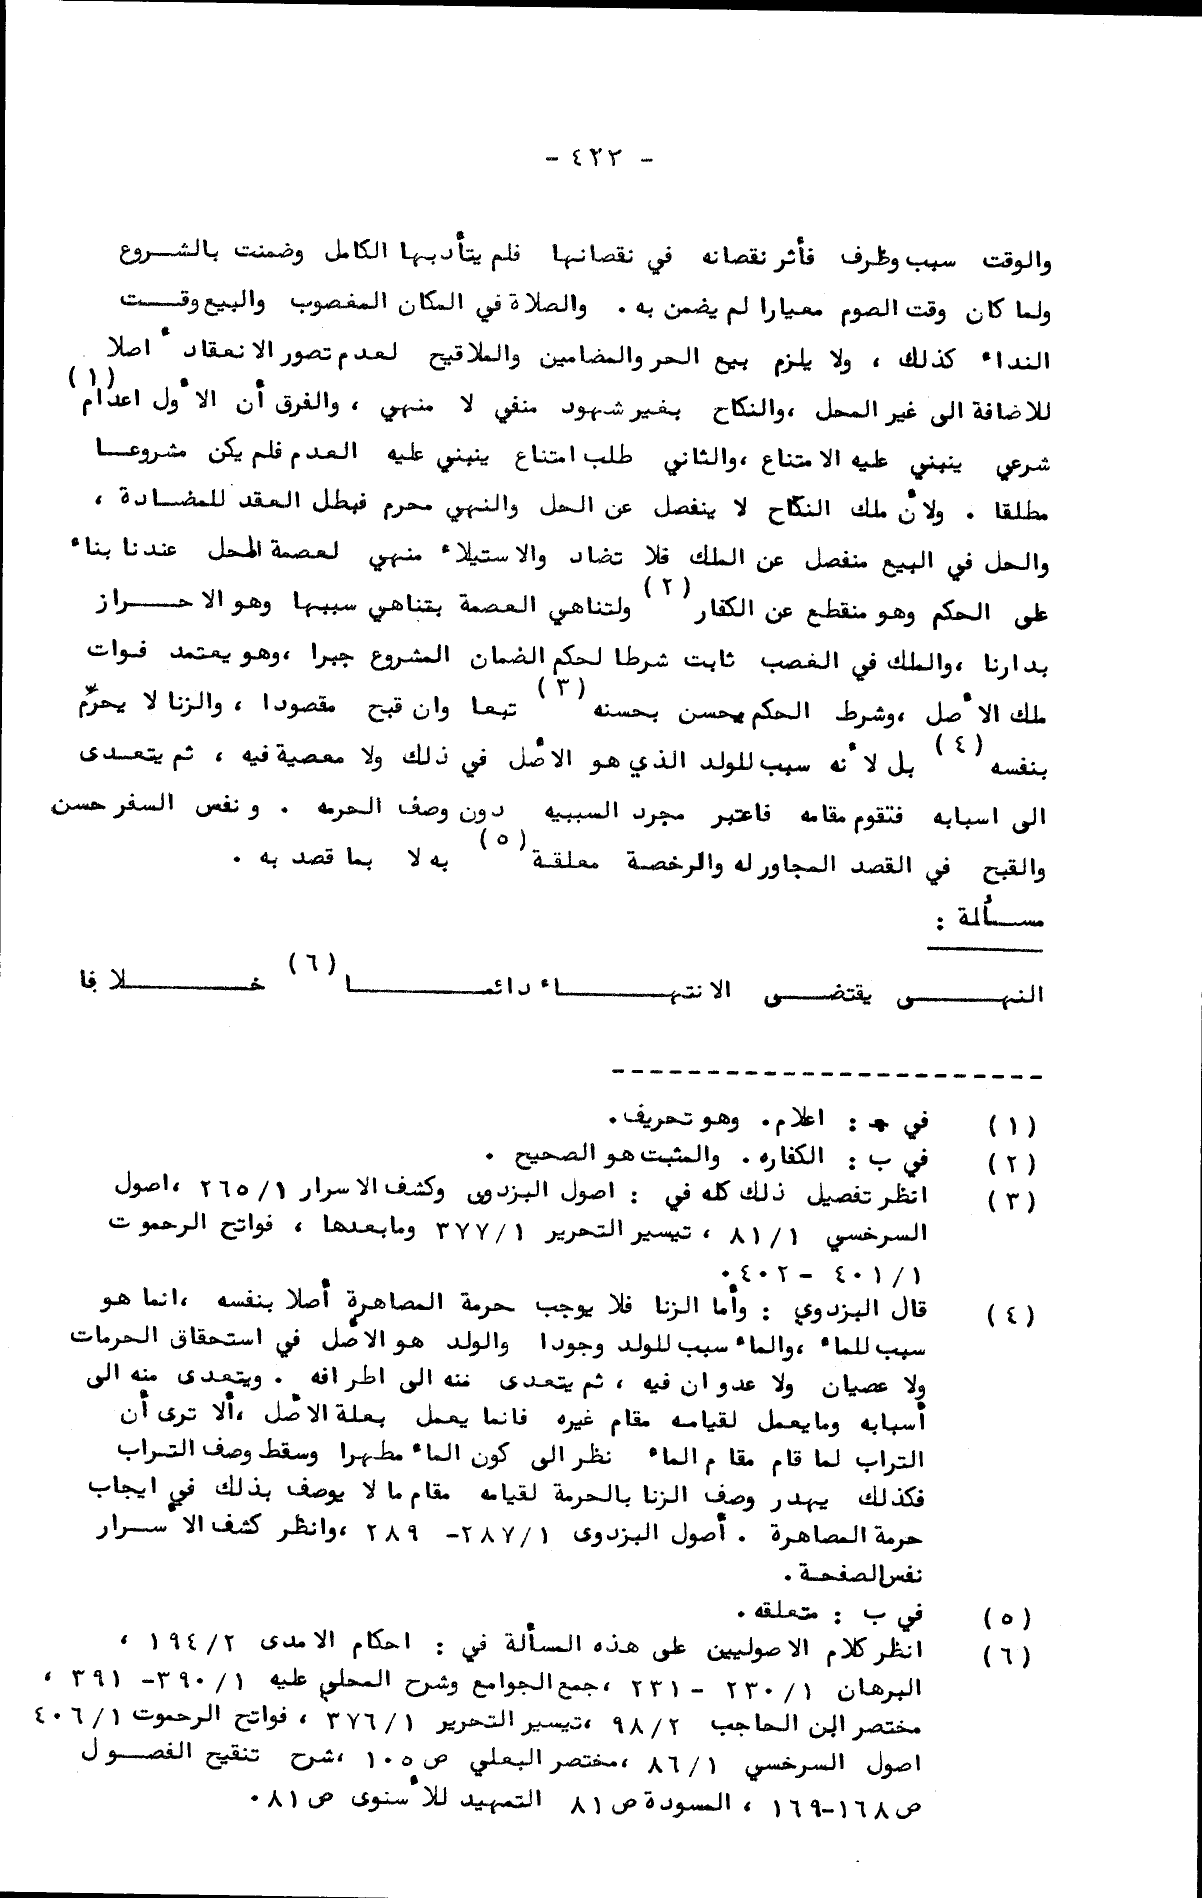 - ٤٢٢ -
والوقت سبب وظرف فأثر نقصانه في نقصانها فلم يتأد بها الكامل وضمنت بالشروع
ولما كان وقت الصوم معيارا لم يضمن به . والصلاة في المكان المغصوب والبيع وقت
النداء كذلك ، ولا يلزم بيع الحر والمضامين والملاقيح لعدم تصور الانعقاد أصلا
للاضافة الى غير المحل ،والنكاح بغير شهود منفي لا منهي ، والفرق أن الأول اعدام (١)
شرعي ينبني عليه الامتناع ،والثاني طلب امتناع ينبني عليه العدم فلم يكن مشروعا
مطلقا . ولأن ملك النكاح لا ينفصل عن الحل والنهي محرم فبطل العقد للمضادة ،
والحل في البيع منفصل عن الملك فلا تضاد والاستيلاء منهي لعصمة المحل عندنا بناء
على الحكم وهو منقطع عن الكفار (٢) ولتناهي العصمة بتناهي سببها وهو الاحراز
بدارنا ،والملك في الغصب ثابت شرطا لحكم الضمان المشروع جبرا ،وهو يعتمد فوات
ملك الأصل ،وشرط الحكم يحسن بحسنه (٣) تبعا وان قبح مقصودا ، والزنا لا يحرّم
بنفسه (٤) بل لأنه سبب للولد الذي هو الأصل في ذلك ولا معصية فيه ، ثم يتعدى
الى اسبابه فتقوم مقامه فاعتبر مجرد السببيه دون وصف الحرمه . ونفس السفر حسن
والقبح في القصد المجاور له والرخصة معلقة (٥) به لا بما قصد به .
مسألة :
النهى يقتضى الانتهاء دائما (٦) خلافا
(١) في جـ : اعلام . وهو تحريف.
(٢) في ب : الكفاره . والمثبت هو الصحيح .
(٣) انظر تفصيل ذلك كله في : اصول البزدوى وكشف الاسرار ٢٦٥/١ ،اصول
السرخسي ٨١/١ ، تيسير التحرير ٣٧٧/١ ومابعدها ، فواتح الرحموت
٤٠١/١ - ٤٠٢.
(٤) قال البزدوي : وأما الزنا فلا يوجب حرمة المصاهرة أصلا بنفسه ،انما هو
سبب للماء ،والماء سبب للولد وجودا والولد هو الأصل في استحقاق الحرمات
ولا عصيان ولا عدوان فيه ، ثم يتعدى منه الى اطرافه . ويتعدى منه الى
أسبابه ومايعمل لقيامه مقام غيره فانما يعمل بعلة الأصل ،ألا ترى أن
التراب لما قام مقام الماء نظر الى كون الماء مطهرا وسقط وصف التراب
فكذلك يهدر وصف الزنا بالحرمة لقيامه مقام ما لا يوصف بذلك في ايجاب
حرمة المصاهرة . أصول البزدوى ٢٨٧/١- ٢٨٩ ،وانظر كشف الأسرار
نفس الصفحة .
(٥) في ب : متعلقه .
(٦) انظر كلام الاصوليين على هذه المسألة في : احكام الامدى ١٩٤/٢ ،
البرهان ٢٣٠/١ - ٢٣١ ،جمع الجوامع وشرح المحلي عليه ٣٩٠/١- ٣٩١ ،
مختصر ابن الحاجب ٩٨/٢ ،تيسير التحرير ٣٧٦/١ ، فواتح الرحموت ٤٠٦/١
اصول السرخسي ٨٦/١ ،مختصر البعلي ص ١٠٥ ،شرح تنقيح الفصول
ص ١٦٨-١٦٩ ، المسودة ص ٨١ التمهيد للأسنوى ص ٨١.